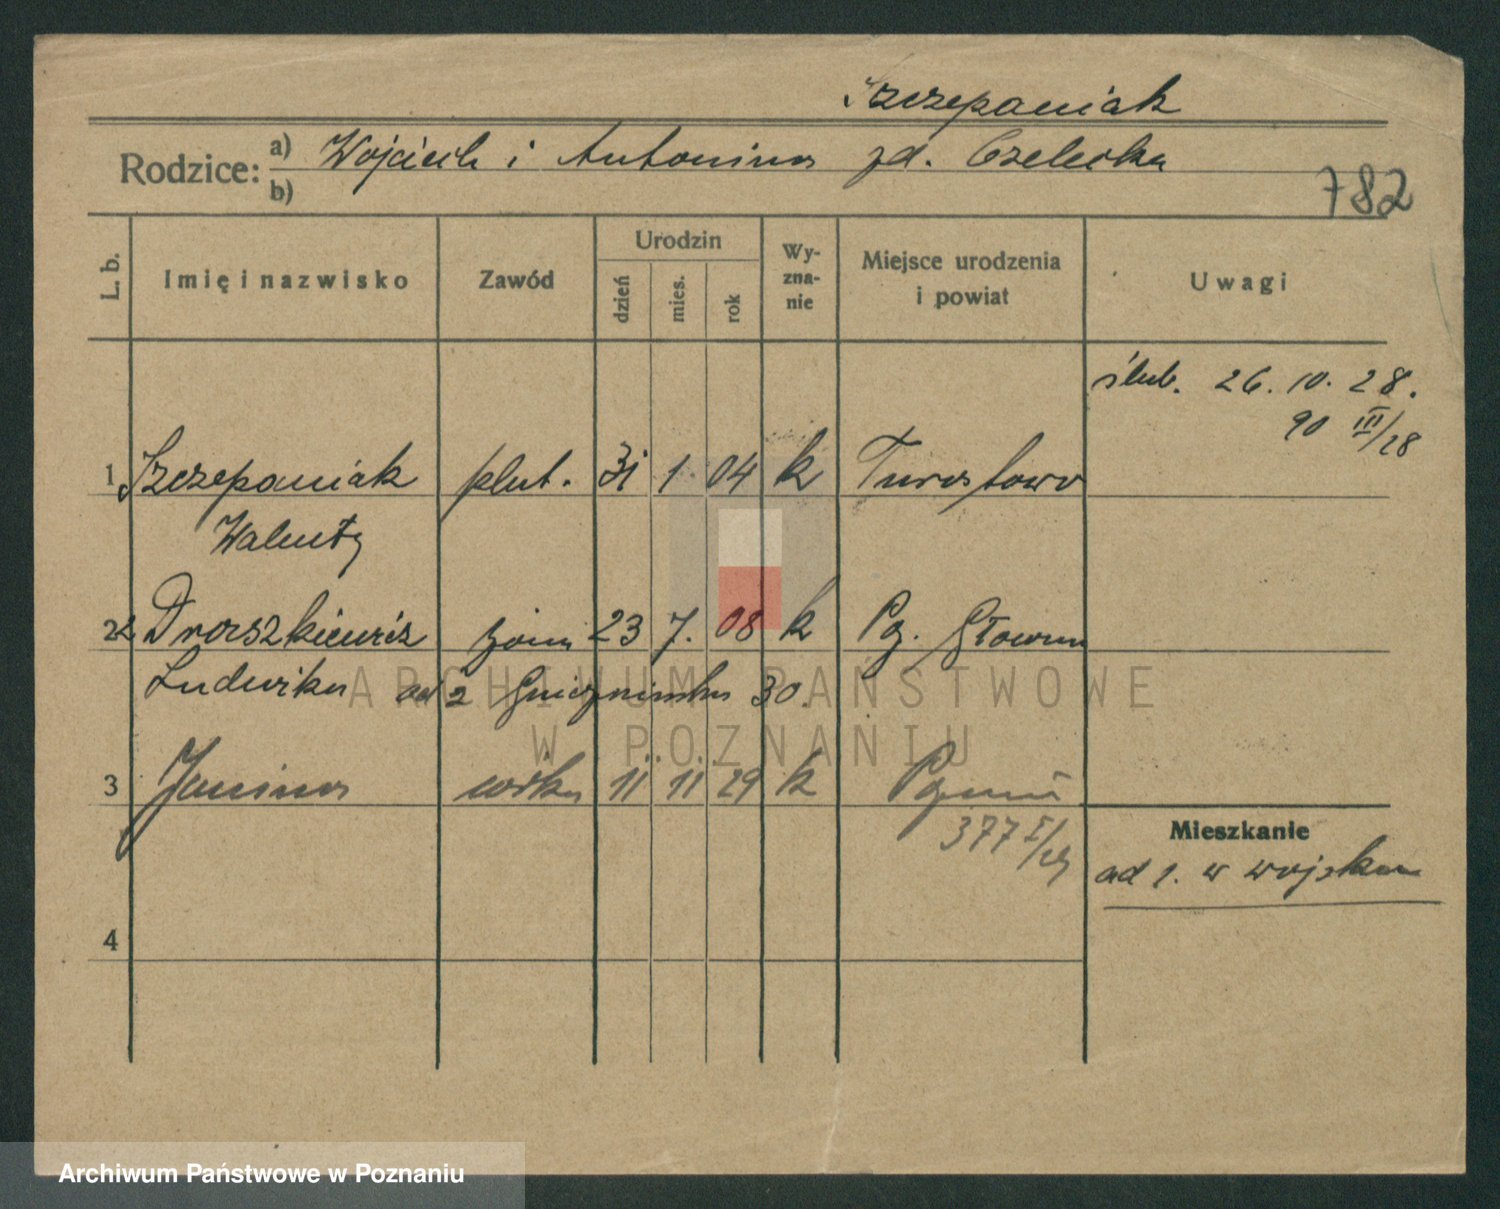 Szczepaniak
Rodzice: a) Wojciech i Antonina zd. Czelecka
b)
782
L. b.
Imię i nazwisko
Zawód
Urodzin
dzień
mies.
rok
Wy-
zna-
nie
Miejsce urodzenia
i powiat
Uwagi
ślub. 26. 10. 28.
90 III/28
1 Szczepaniak plut. 31 1 04 k Turostowo
Walenty
2 żona 23 7. 08 k Pz. Główna
Ludwika od 2 Gnieźnieńska 30.
3 Janina córka 11 11 29 k Poznań
377 I/29
Mieszkanie
od 1. w wojsku
4
ARCHIWUM PAŃSTWOWE
W POZNANIU
Archiwum Państwowe w Poznaniu